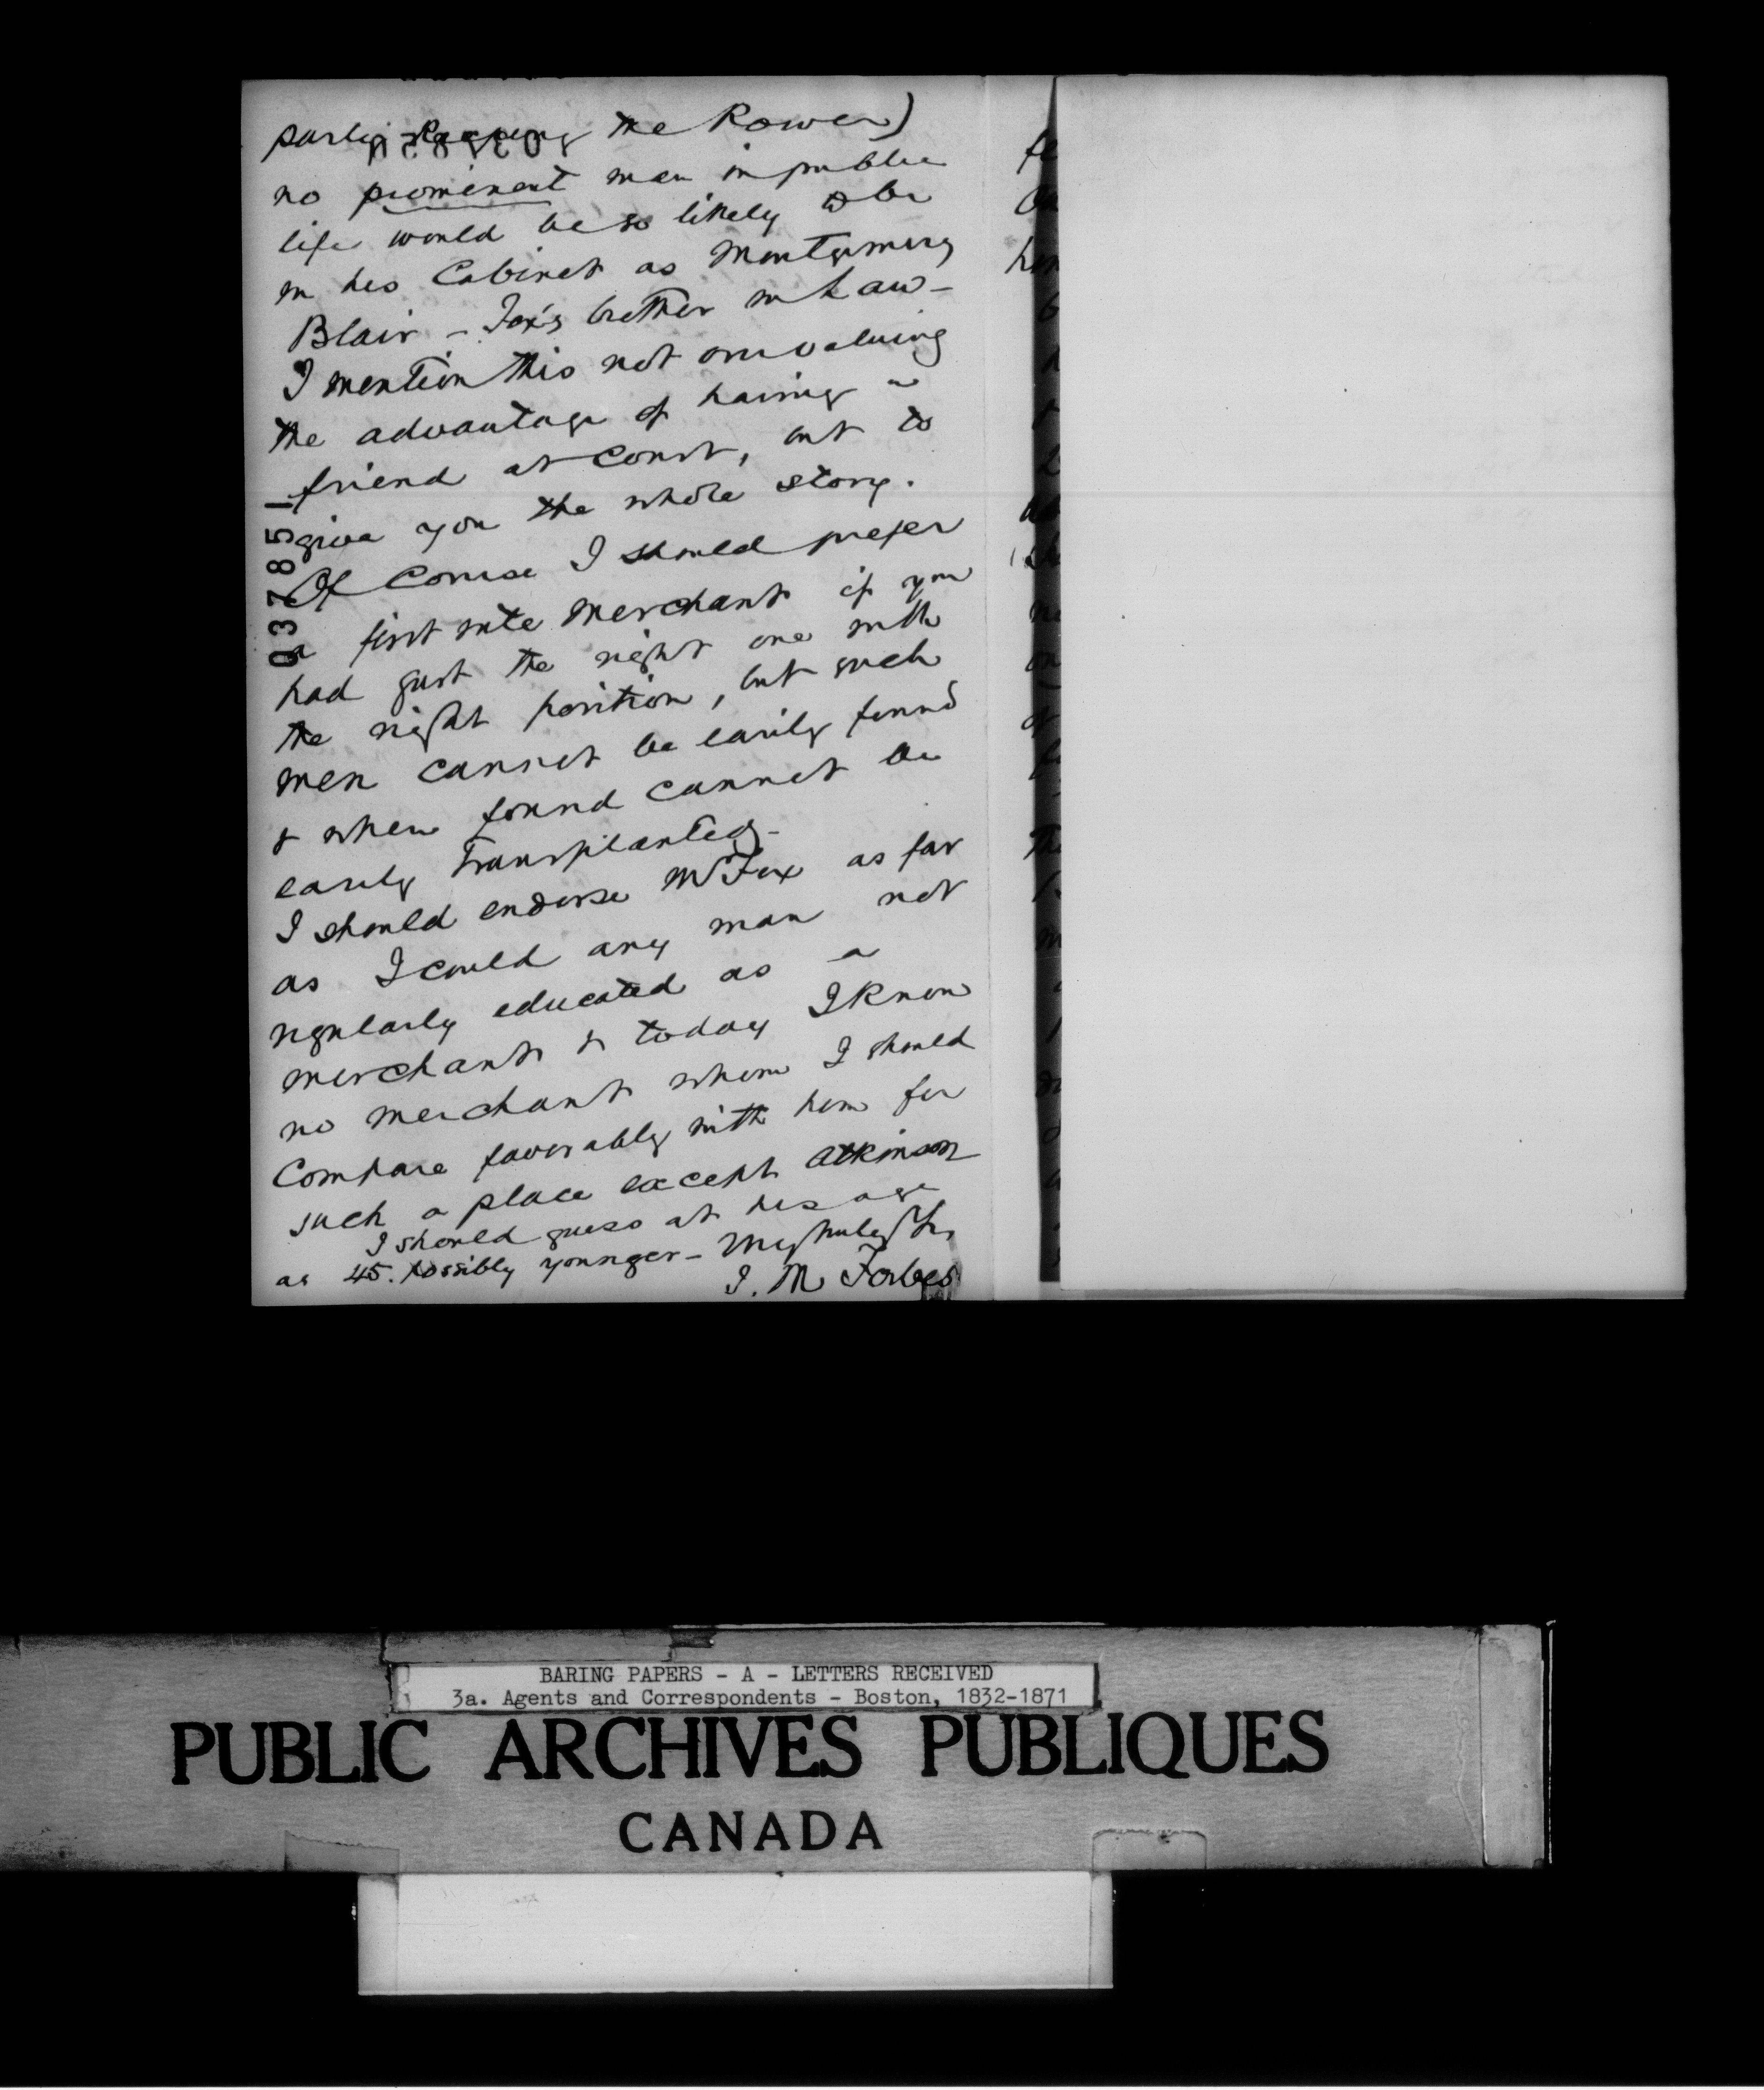 party keeping the Power)
no prominent man in public
life would be so likely to be
in his Cabinet as Montgomery
Blair - Fox's brother in Law -
I mention this not overvaluing
the advantage of having a
friend at Court, but to
give you the whole story.
Of Course I should prefer
a first rate merchant if you
had just the right one with
the right position, but such
men cannot be easily found
& when found cannot be
easily transplanted -
I should endorse Mr Fox as far
as I could any man not
regularly educated as a
merchant & today I know
no merchant whom I should
Compare favorably with him for
such a place except Atkinson
I should guess at his age
as 45. possibly younger - Very truly Yrs
J. M Forbes
037851
fe
On
him
BARING PAPERS - A - LETTERS RECEIVED
3a. Agents and Correspondents - Boston, 1832-1871
PUBLIC ARCHIVES PUBLIQUES
CANADA